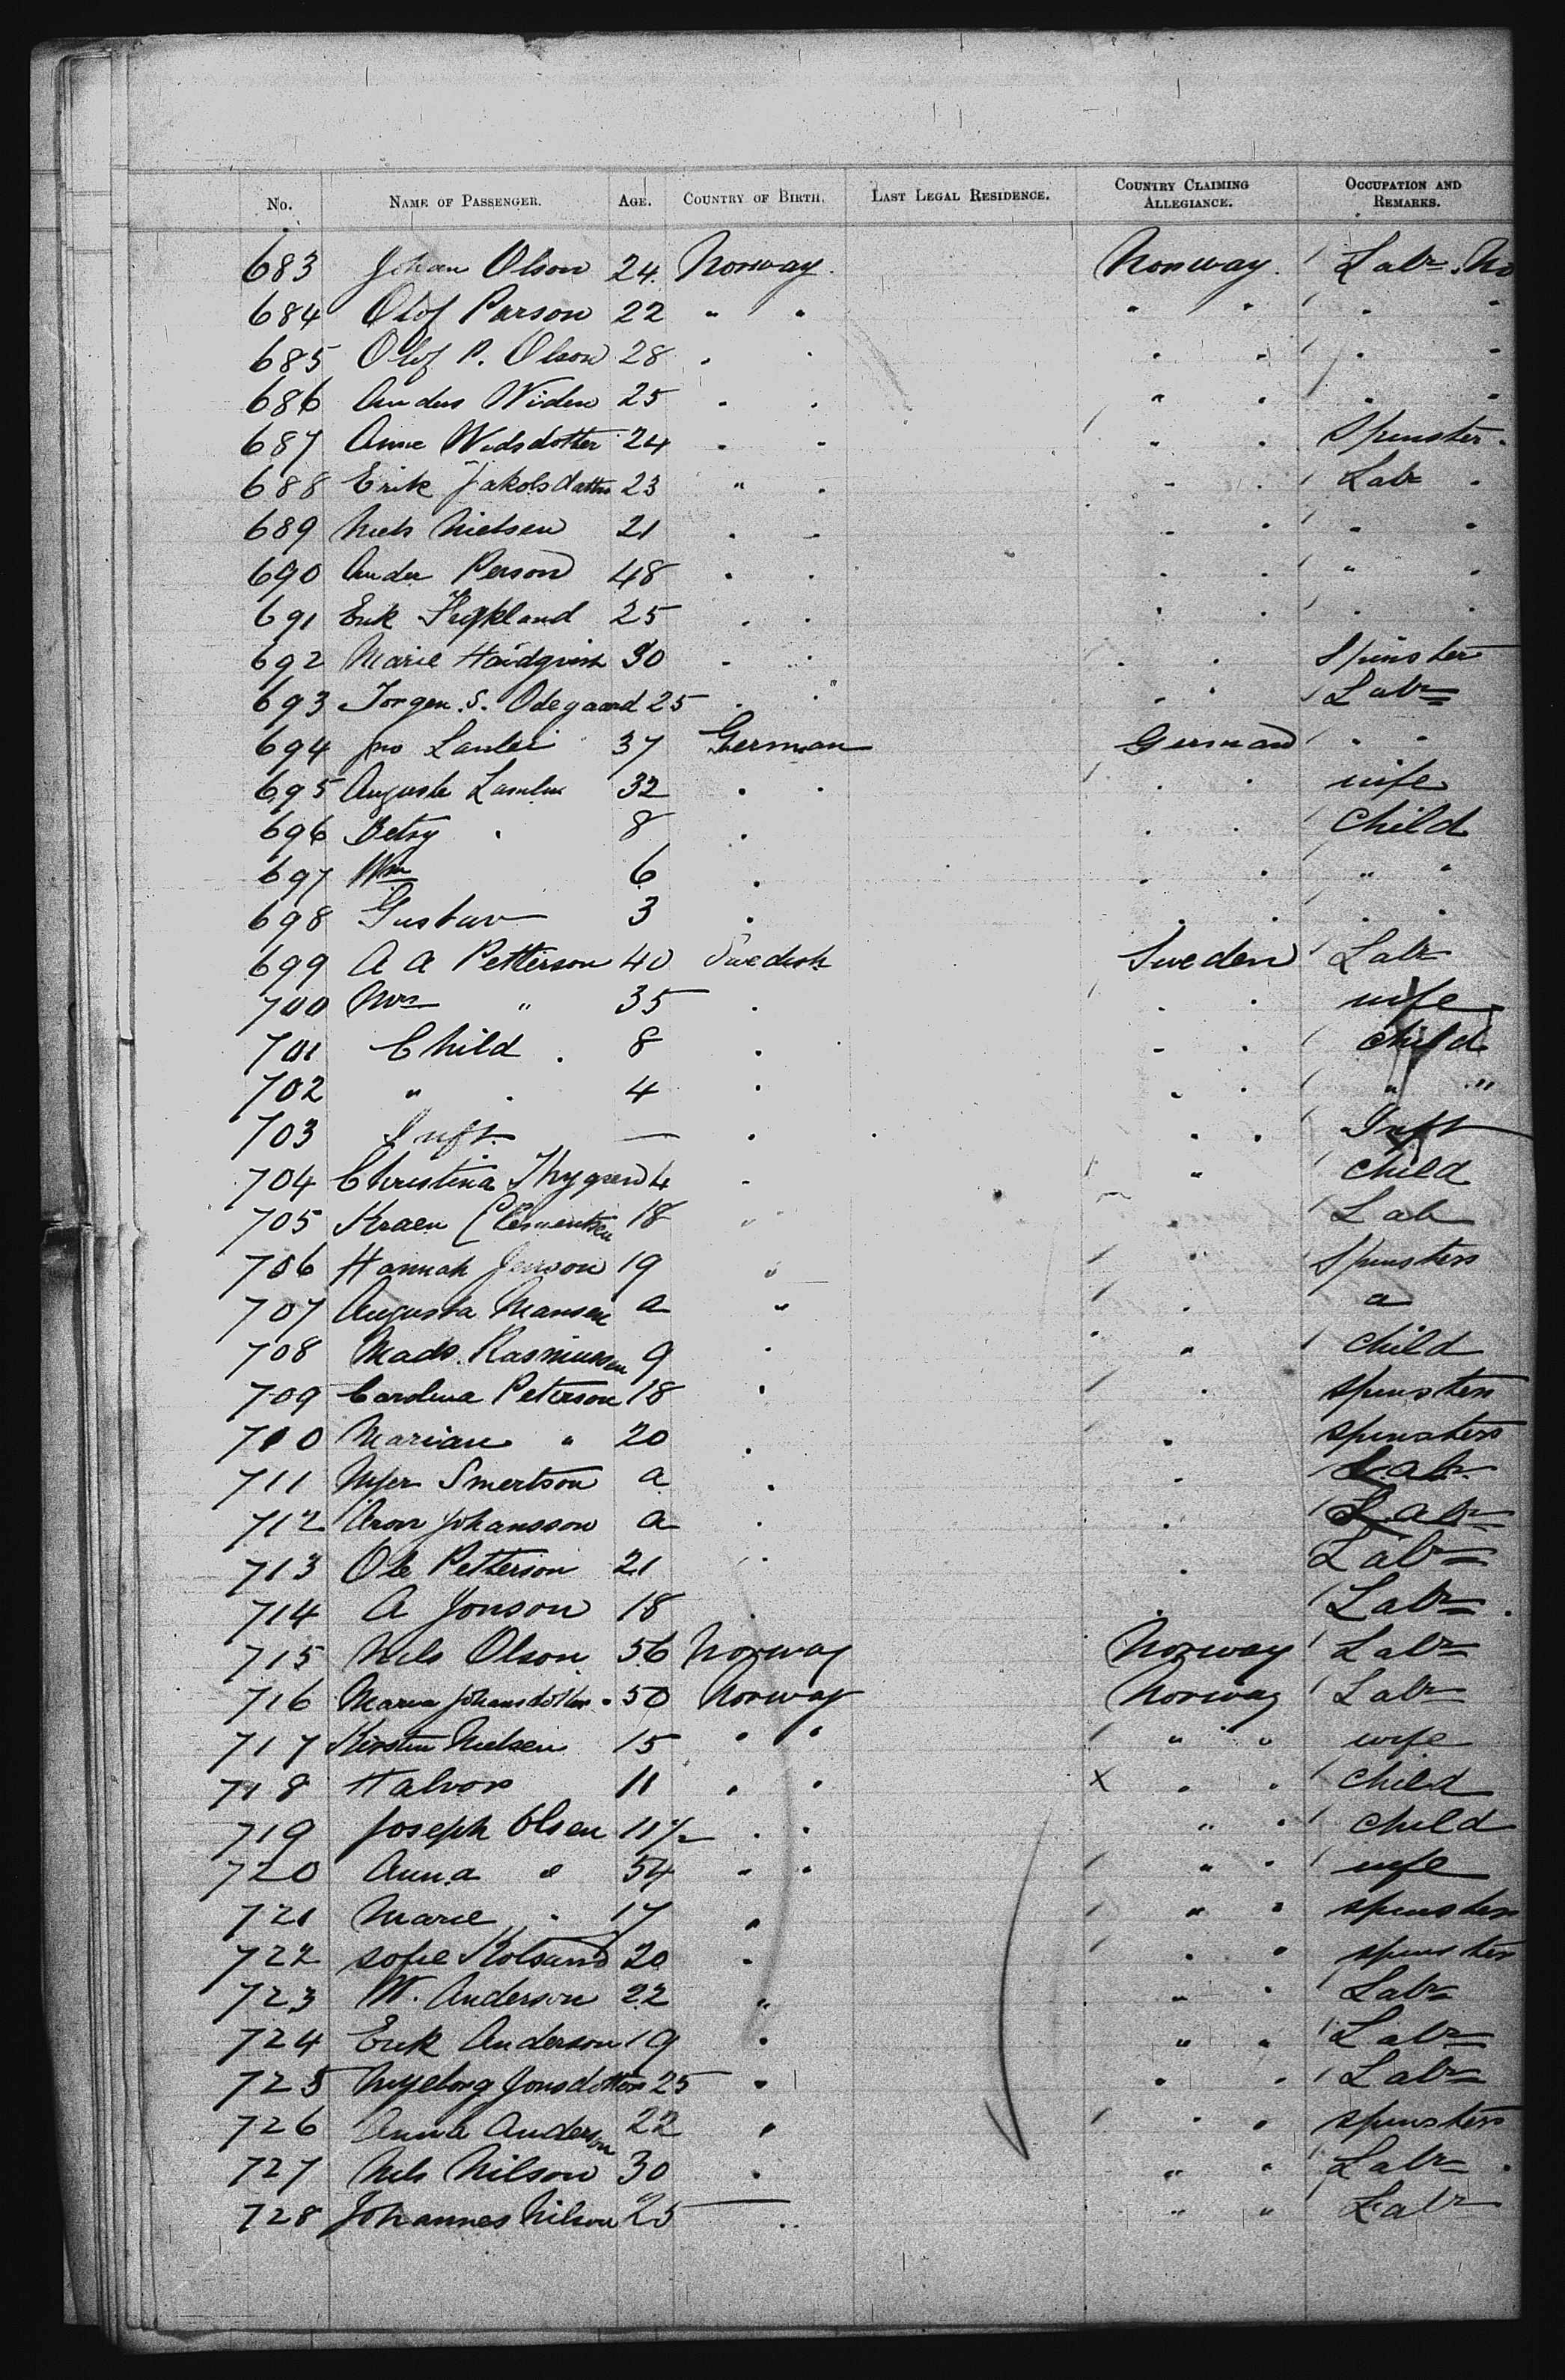 No. NAME OF PASSENGER. AGE. COUNTRY OF BIRTH. LAST LEGAL RESIDENCE. COUNTRY CLAIMING ALLEGIANCE. OCCUPATION AND REMARKS.
683 Johan Olson 24 Norway. Norway. Labr. No
684 Olof Parson 22 " " " " " "
685 Olof P. Olson 28 " " " " " "
686 Andus Widen 25 " " " " " "
687 Anne Widsdotter 24 " " " " Spinster "
688 Erik Jakobsdatter 23 " " " " Labr "
689 Niels Nielsen 21 " " " " " "
690 Ander Person 48 " " " " " "
691 Erik 25 " " " " " "
692 Marie 30 " " " " Spinster
693 Jorgen S. Odegaard 25 " " " " Labr
694 Jno 37 German German " "
695 Auguste 32 " " " " wife
696 Betsy " 8 " " " Child
697 Wm 6 " " " " "
698 Gustav 3 " " " " "
699 A A Petterson 40 Swedish Sweden Labr
700 Mrs " 35 " " " wife
701 Child " 8 " " " child
702 " " 4 " " " " "
703 Inft. — " " " Inft
704 Christina Thygsen 4 " " child
705 Kraen Clementsen 18 " " " Lab
706 Hannah Jenson 19 " " Spinsters
707 Augusta Mansen a " " a
708 Mads. Rasmussen 9 " " child
709 Carolina Peterson 18 " " spinsters
710 Marian " 20 " " spinsters
711 Smertson a " " Labr
712 Aron Johansson a " " Labr
713 Ole Petterson 21 " " Labr
714 A Jonson 18 " " Labr
715 Nils Olson 56 Norway Norway Labr
716 Maria Johansdotter 50 Norway Norway Labr
717 Kirsten Nielsen 15 " " " " wife
718 Halvor 11 " " X " " child
719 Joseph Olsen 11/- " " " " child
720 Anna " 54 " " " " wife
721 Marie " 17 " " " spinsters
722 Sofie 20 " " " spinsters
723 W. Anderson 22 " " " Labr
724 Erik Anderson 19 " " " Labr
725 Ingeborg Jonsdotter 25 " " " Labr
726 Anna Anderson 22 " " " spinsters
727 Nils Nilson 30 " " " Labr
728 Johannes Nilson 25 " " " Labr